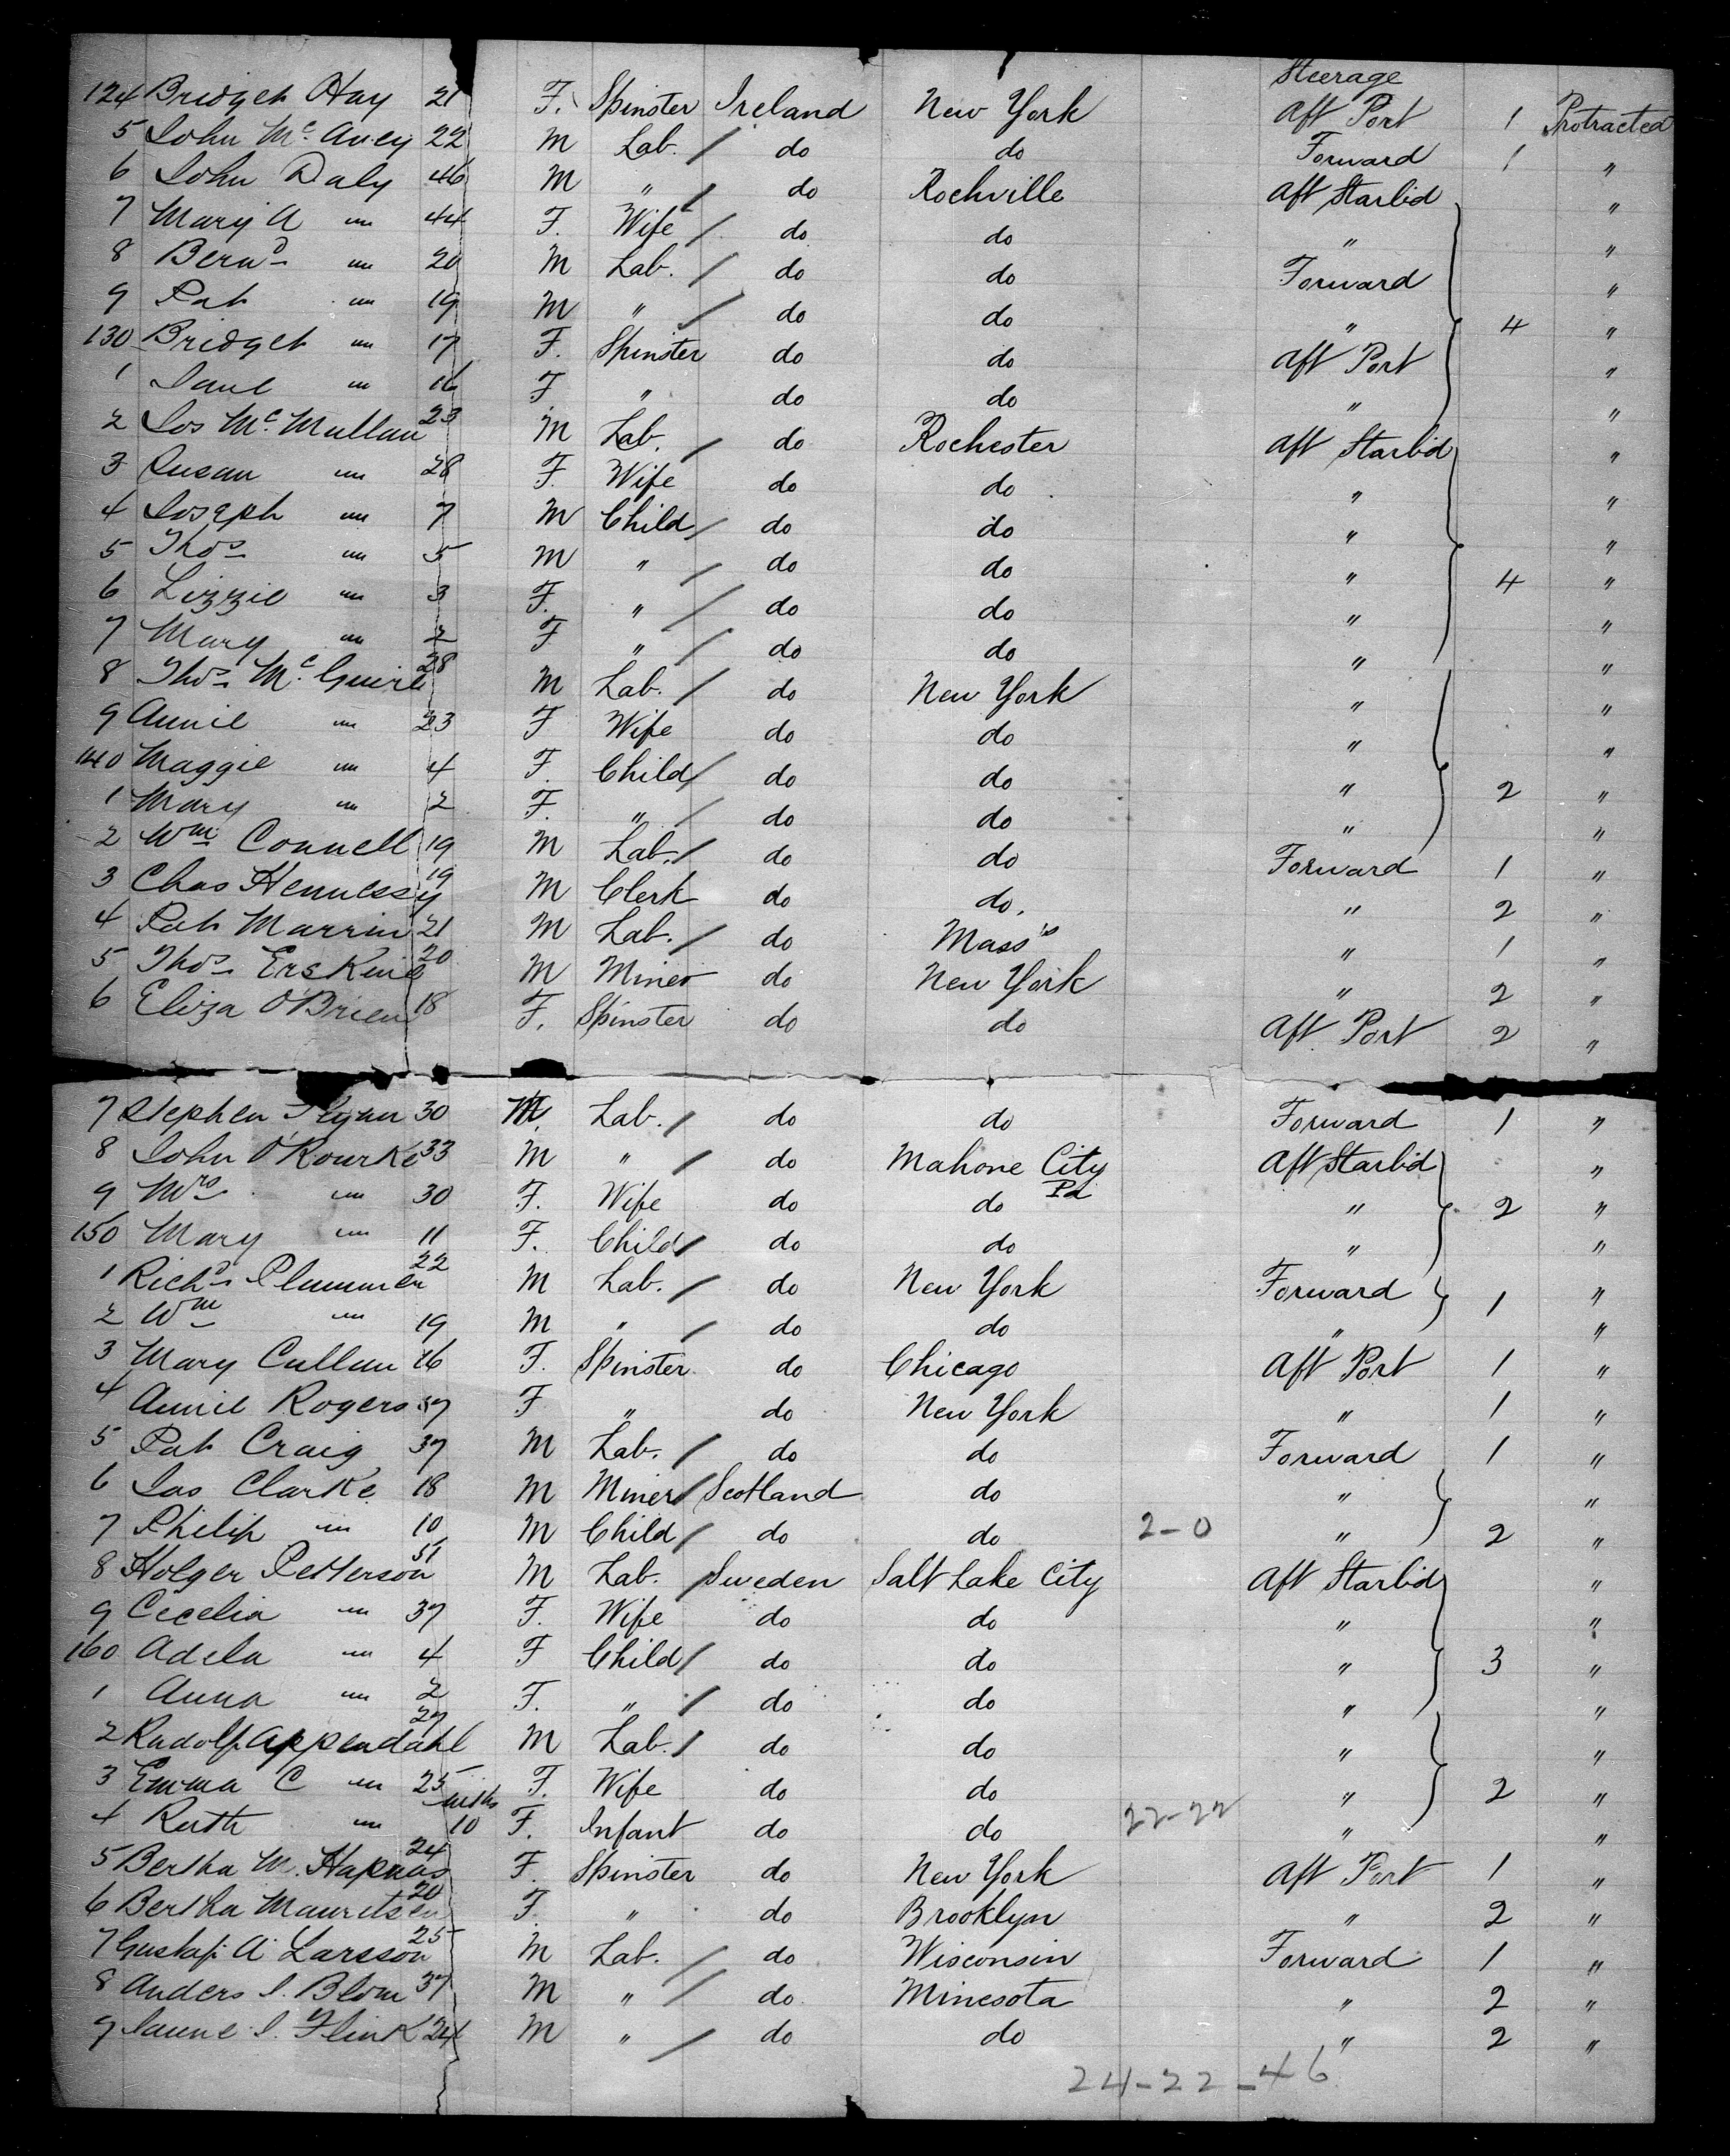 Steerage
124 Bridget Hay 21 F. Spinster Ireland New York Aft Port 1 Protracted
5 John McAvey 22 M Lab. / do do Forward 1 "
6 John Daly 46 M " / do Rockville Aft Starbd "
7 Mary A " 44 F. Wife / do do " "
8 Bernd " 20 M Lab. / do do Forward "
9 Pat " 19 M " / do do " 4 "
130 Bridget " 17 F. Spinster do do Aft Port "
1 Jane " 16 F " do do " "
2 Jos McMullan 23 M Lab. / do Rochester Aft Starbd "
3 Susan " 28 F. Wife do do " "
4 Joseph " 7 M Child / do do " "
5 Thos " 5 M " / do do " 4 "
6 Lizzie " 3 F. " / do do " "
7 Mary " 2 F " / do do " "
8 Thos McGuire 28 M Lab. / do New York " "
9 Annie " 23 F Wife do do " "
140 Maggie " 4 F. Child / do do " 2 "
1 Mary " 2 F. " / do do " "
2 Wm Connell 19 M Lab. / do do Forward 1 "
3 Chas Hennessy 19 M Clerk do do. " 2 "
4 Pat Marrin 21 M Lab. / do Mass " 1 "
5 Thos Erskine 20 M Miner do New York " 2 "
6 Eliza O'Brien 18 F. Spinster do do Aft Port 2 "
7 Stephen Flynn 30 M. Lab. / do do Forward 1 "
8 John O'Rourke 33 M " / do Mahone City Pa Aft Starbd "
9 Mrs " 30 F. Wife do do " 2 "
150 Mary " 11 F. Child / do do " "
1 Richd Plummer 22 M Lab. / do New York Forward 1 "
2 Wm " 19 M " / do do " "
3 Mary Cullan 16 F. Spinster do Chicago Aft Port 1 "
4 Annie Rogers 37 F " do New York " 1 "
5 Pat Craig 37 M Lab. / do do Forward 1 "
6 Jas Clarke 18 M Miner / Scotland do " "
7 Philip " 10 M Child / do do 2-0 " 2 "
8 Holger Petterson 51 M Lab. / Sweden Salt Lake City Aft Starbd "
9 Cecelia " 37 F. Wife do do " "
160 Adela " 4 F Child / do do " 3 "
1 Anna " 2 F. " / do do " "
2 Rudolf Appendahl 27 M Lab. / do do " "
3 Emma C " 25 F. Wife do do " 2 "
4 Ruth " 10 mths F. Infant do do 22-22 " "
5 Bertha M. 24 F. Spinster do New York Aft Port 1 "
6 Bertha Mauritsen 20 F. " do Brooklyn " 2 "
7 Gustaf A. Larsson 25 M Lab. / do Wisconsin Forward 1 "
8 Anders J. Blom 37 M " / do Minesota " 2 "
9 J. Flink 24 M " / do do " 2 "
24-22-46